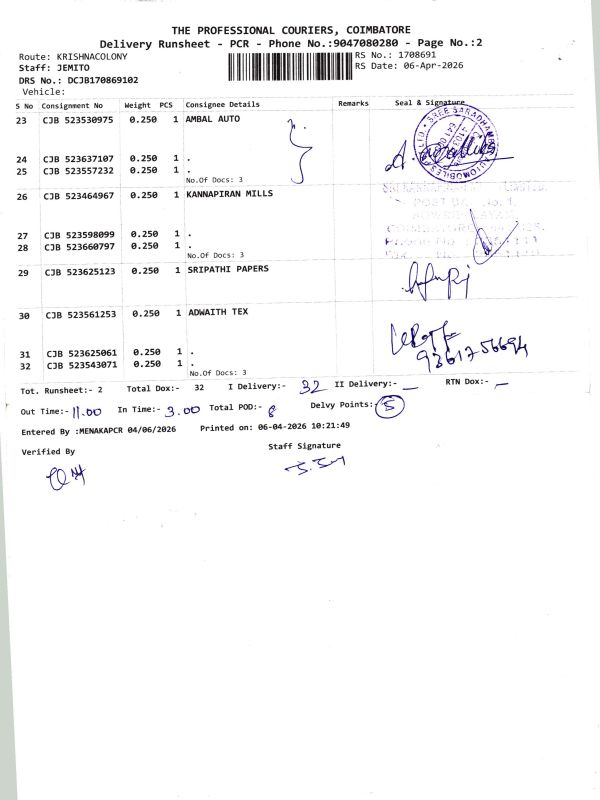 THE PROFESSIONAL COURIERS, COIMBATORE
Delivery Runsheet - PCR - Phone No.:9047080280 - Page No.:2
Route: KRISHNACOLONY RS No.: 1708691
Staff: JEMITO RS Date: 06-Apr-2026
DRS No.: DCJB170869102
Vehicle:
S No Consignment No Weight PCS Consignee Details Remarks Seal & Signature
23 CJB 523530975 0.250 1 AMBAL AUTO
24 CJB 523637107 0.250 1 .
25 CJB 523557232 0.250 1 .
No.Of Docs: 3
26 CJB 523464967 0.250 1 KANNAPIRAN MILLS
27 CJB 523598099 0.250 1 .
28 CJB 523660797 0.250 1 .
No.Of Docs: 3
29 CJB 523625123 0.250 1 SRIPATHI PAPERS
30 CJB 523561253 0.250 1 ADWAITH TEX
31 CJB 523625061 0.250 1 .
32 CJB 523543071 0.250 1 .
9361756694
No.Of Docs: 3
Tot. Runsheet:- 2 Total Dox:- 32 I Delivery:- 32 II Delivery:- — RTN Dox:- —
Out Time:- 11.00 In Time:- 3.00 Total POD:- 8 Delvy Points:- 5
Entered By :MENAKAPCR 04/06/2026 Printed on: 06-04-2026 10:21:49
Verified By Staff Signature